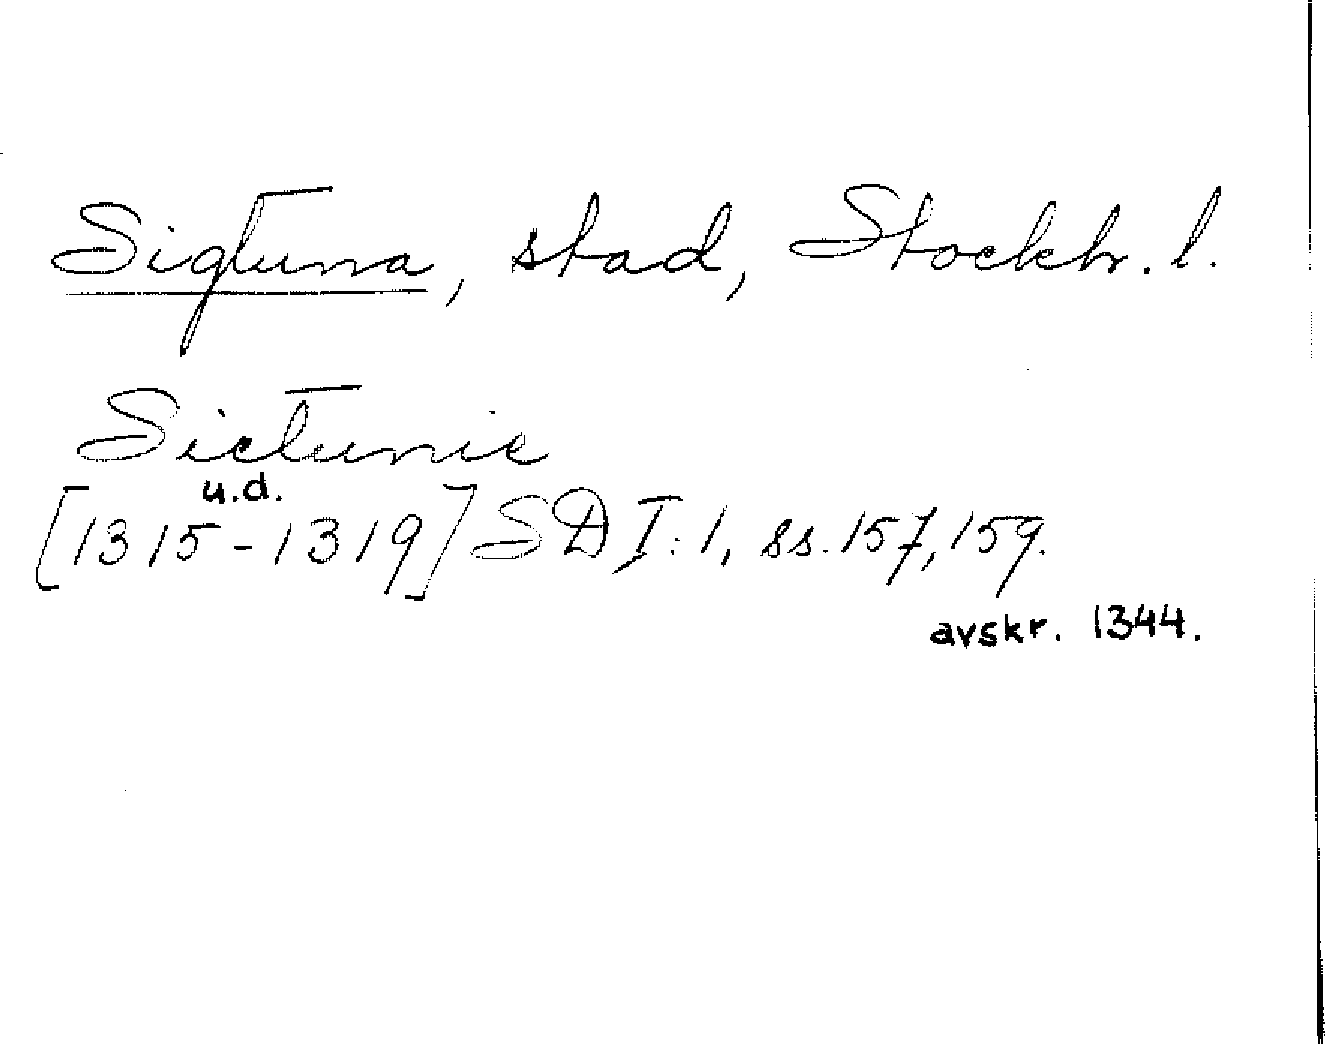 Sigtuna, stad, Stockh. l.
Sictunie
u.d.
[1315-1319] SD I:1, ss. 157, 159.
avskr. 1344.